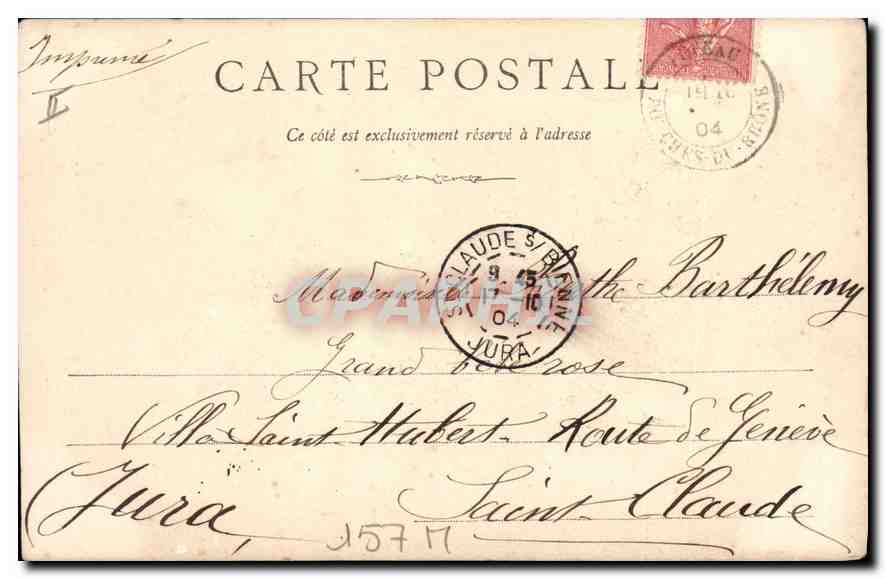 Imprimé
II
CARTE POSTALE
Ce côté est exclusivement réservé à l'adresse
04
BOUCHES-DU-RHONE
ST CLAUDE S/ BIENNE
9 45
17 10
04
JURA
Mademoiselle Barthélemy
Grand rose
Villa Saint Hubert Route de Genève
Saint-Claude
(Jura)
157 M
CPAPHIL